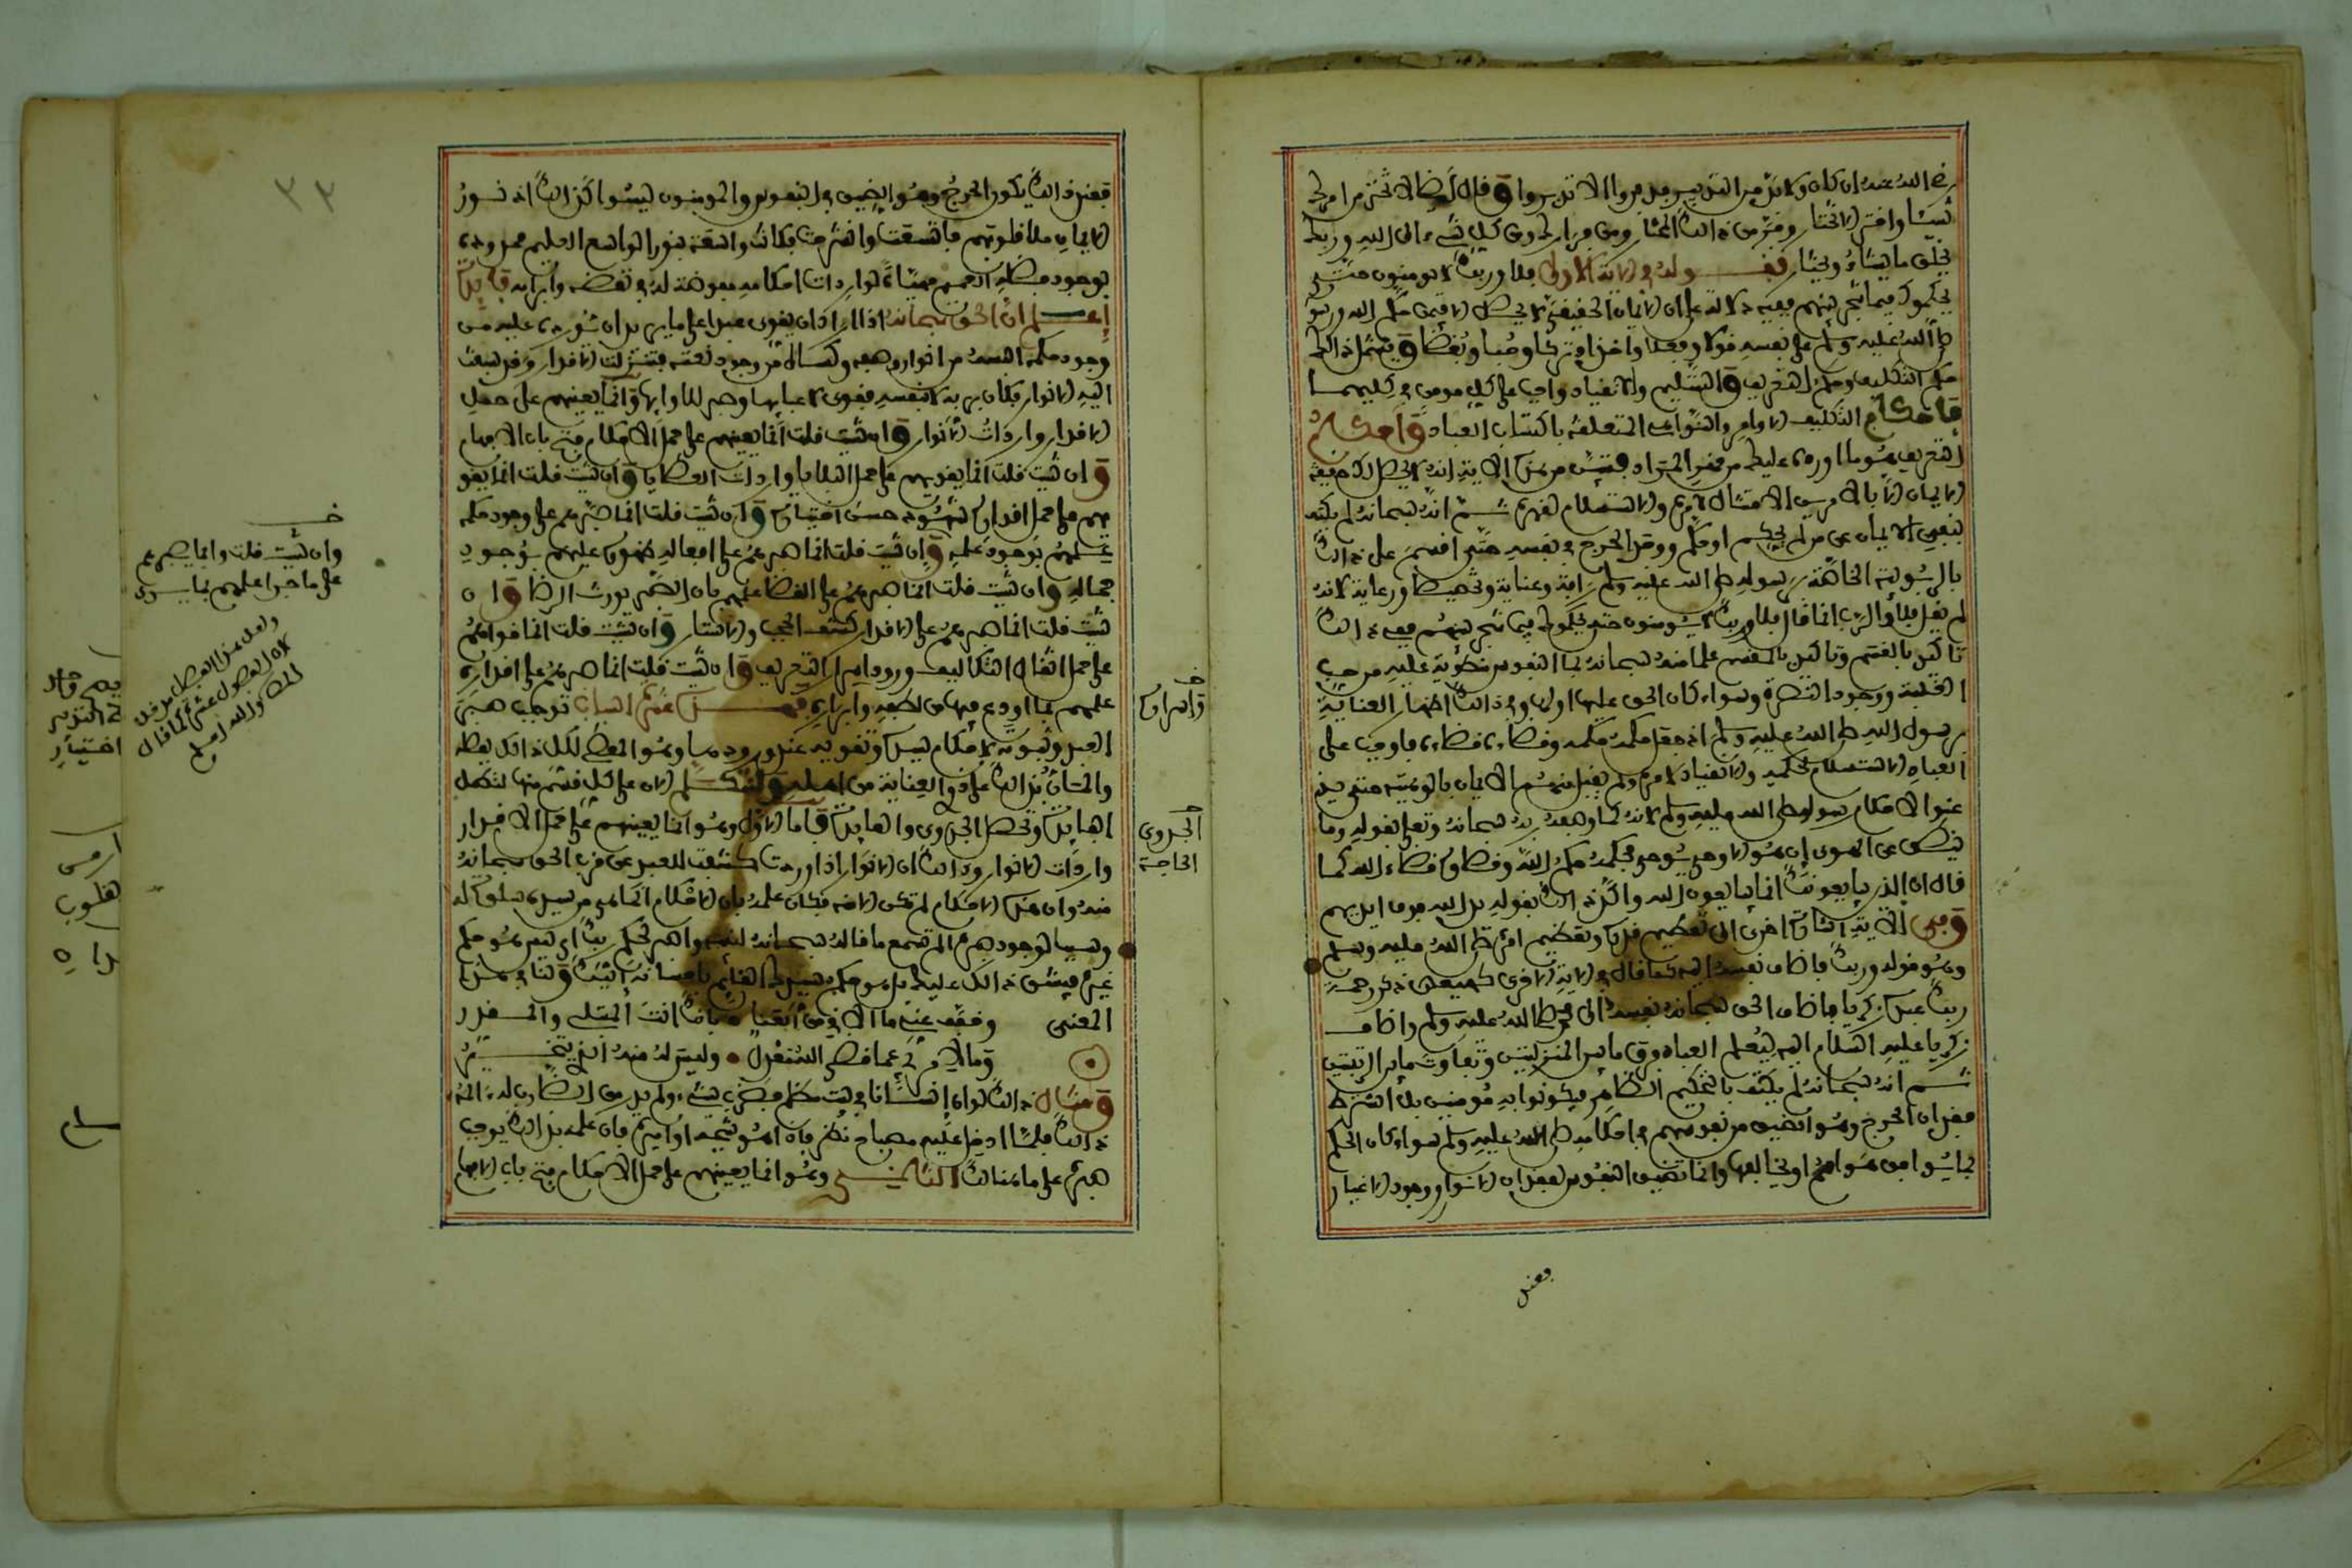 رضي الله عنه ان كان ولا بد من التدبير فدبروا الا تدبروا وقال ايضا لا تختر من امرك
شيئا واختر الا تختار وفر من ذلك المختار ومن فرارك ومن كل شيء الى الله وربك
يخلق ما يشاء ويختار فقوله في الاية الاولى فلا وربك لا يومنون حتى
يحكموك فيما شجر بينهم فيه دلالة على ان الايمان الحقيقي لا يحصل الا لمن حكم الله ورسوله
صلى الله عليه وسلم على نفسه قولا وفعلا واخذا وتركا وحبا وبغضا ويشتمل ذلك
حكم التكليف وحكم التعريف والتسليم والانقياد واجب على كل مومن في كليهما
فاحكام التكليف الاوامر والنواهي المتعلقة باكتساب العباد واحكام
التعريف هو ما اورده عليك من فهر المراد فتبين من هذا الاية انه لا يحصل لك حقيقة
الايمان الا بالامرين الامتثال لامره والاستسلام لقهره ثم انه سبحانه لم يكتف
بنفي الايمان عن من لم يحكم او حكم ووجد الحرج في نفسه حتى اقسم على ذلك
بالربوبية الخاصة برسوله صلى الله عليه وسلم رافة وعناية وتخصيصا ورعاية لانه
لم يقل فلا والرب انما قال فلا وربك لا يومنون حتى يحكموك فيما شجر بينهم ففي ذلك
تاكيد بالقسم وتاكيد بالمقسم علما منه سبحانه بما النفوس منطوية عليه من حب
الغلبة ووجود النصرة وسواء كان الحق عليها اولها وفي ذلك اظهار العناية
برسول الله صلى الله عليه وسلم اذ جعل حكمه حكمه وقضاءه قضاءه فاوجب على
العباد الاستسلام لحكمه والانقياد لامره ولم يقبل منهم الايمان بالوهيته حتى
يذعنوا لاحكام رسوله صلى الله عليه وسلم لانه كما وصفه ربه سبحانه وتعلى بقوله وما
ينطق عن الهوى إن هو الا وحي يوحى فحكمه حكم الله وقضاؤه قضاء الله كما
قال ان الذين يبايعونك انما يبايعون الله واكد ذلك بقوله يد الله فوق ايديهم
وفي الاية اشارة اخرى الى تعظيم قدره وتفخيم امره صلى الله عليه وسلم
وهو قوله وربك فاضاف نفسه اليه كما قال في الاية الاخرى كهيعص ذكر رحمة
ربك عبده زكريا فاضاف الحق سبحانه نفسه الى محمد صلى الله عليه وسلم واضاف
زكريا عليه السلام اليه ليعلم العباد فرق ما بين المنزلتين وتفاوت ما بين الرتبتين
ثم انه سبحانه لم يكتف بالتحكيم الظاهر فيكونوا به مومنين بل اشترط
فقدان الحرج وهو الضيق من نفوسهم في احكامه صلى الله عليه وسلم سواء كان الحكم
بما يوافق هواهم او يخالفها وانما تضيق النفوس لفقدان الانوار ووجود الاغيار
فعنه
فعنه ذلك يكون الحرج وهو الضيق في النفوس والمومنون ليسوا كذلك اذ نور
الايمان ملا قلوبهم فاتسعت وانشرحت فكانت واسعة بنور الواسع العليم ممدودة
بوجود فضله العميم مهيئة لواردات احكامه مفوضة له في نقضه وابرامه فايدة
اعلم ان الحق سبحانه اذا اراد ان يقوي عبدا على ما يريد ان يورده عليه من
وجود حكمه البسه من انوار وصفه وكساه من وجود نعته فتنزلت الاقدار وقد سبقت
اليه الانوار فكان بربه لا بنفسه فقوي لاعبائها وصبر للاوائها وانما يعينهم على حمل
الاقدار واردات الانوار وان شيت قلت انما يعينهم على حمل الاحكام فتح باب الافهام
وان شيت قلت انما يعينهم على حمل البلايا واردات العطايا وان شيت قلت انما يقو
يهم على حمل اقداره شهود حسن اختياره وان شيت قلت انما صبرهم على وجود حكمه
علمهم بوجود علمه وان شيت قلت انما صبرهم على افعاله ظهوره عليهم بوجود
جماله وان شيت قلت انما صبرهم على القضا علمهم بان الصبر يورث الرضا وان
شيت قلت انما صبرهم على الاقدار كشف الحجب والاستار وان شيت قلت انما قواهم
على حمل اثقال التكاليف ورود اسرار التعريف وان شيت قلت انما صبرهم على اقداره
علمهم بما اودع فيها من لطفه وابراره فهذه عشرة اسباب توجب صبر
العبد وثبوته لاحكام سيده وتقويه عند ورودها وهو المعطي لكل ذلك بفضله
والمان بذلك على ذوي العناية من اهله ولنتكلم الان على كل قسم منها لتكمل
الفايدة وتحصل الجدوى والعايدة فاما الاول وهو انما يعينهم على حمل الاقدار
واردات الانوار وذلك ان الانوار اذا وردت كشفت للعبد عن قرب الحق سبحانه
منه وان هذه الاحكام لم تكن الا عنه فكان علمه بان الاحكام انما هي من سيده سلوة له
وسببا لوجود صبره الم تسمع ما قاله سبحانه لنبيه واصبر لحكم ربك اي ليس هو حكم
غيره فيشق ذلك عليك بل هو حكم سيدك القايم باحسانه اليك ولنا في هذا
المعنى وخفف عني ما الاقي من العنا بانك انت المبتلي والمقدر
وما لامرئ عما قضى الله معدل وليس له منه الذي يتخير
ومثال ذلك لو ان انسانا في بيت مظلم فضرب بشيء ولم يدر من الضارب له
ذلك فلما ادخل عليه مصباح نظر فاذا هو شيخه او اميره فان علمه بذلك يوجب
صبره على ما هنالك الثاني وهو انما يعينهم على حمل الاحكام فتح باب الافهام
خـ
وان شيت قلت وانما يصبرهم
على ما جرا علمهم بما يرى
واسراره
الجدوى
الحاجة